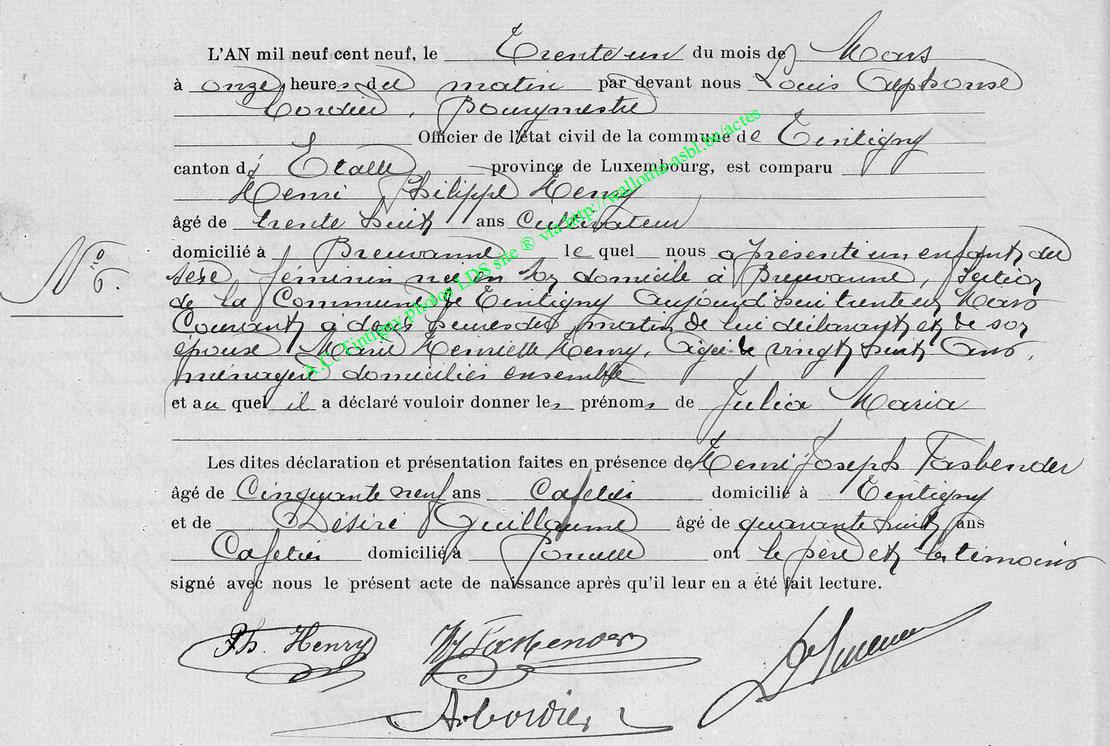 L'AN mil neuf cent neuf, le Trente un du mois de Mars
à onze heures du matin par devant nous Louis Alphonse
Cordier, Bourgmestre
Officier de l'état civil de la commune de Tintigny
canton d' Etalle province de Luxembourg, est comparu
Henri Philippe Henry
âgé de trente huit ans Cultivateur
domicilié à Breuvanne le quel nous a présenté un enfant du
N° 6.
sexe féminin née en son domicile à Breuvanne, section
de la Commune de Tintigny aujourd'hui trente un Mars
Courant à deux heures du matin de lui déclarant et de son
épouse Marie Henriette Henry, âgée de vingt huit ans,
ménagère domiciliés ensemble
et au quel il a déclaré vouloir donner les prénoms de Julia Maria
Les dites déclaration et présentation faites en présence de Henri Joseph Fasbender
âgé de Cinquante neuf ans Cafetier domicilié à Tintigny
et de Désiré Guillaume âgé de quarante huit ans
Cafetier domicilié à ont le père et les témoins
signé avec nous le présent acte de naissance après qu'il leur en a été fait lecture.
Ph. Henry HJ Fasbender
A. Cordier
A.C. Tintigny photos LDS site ® via http://wallonia-asbl.be/actes